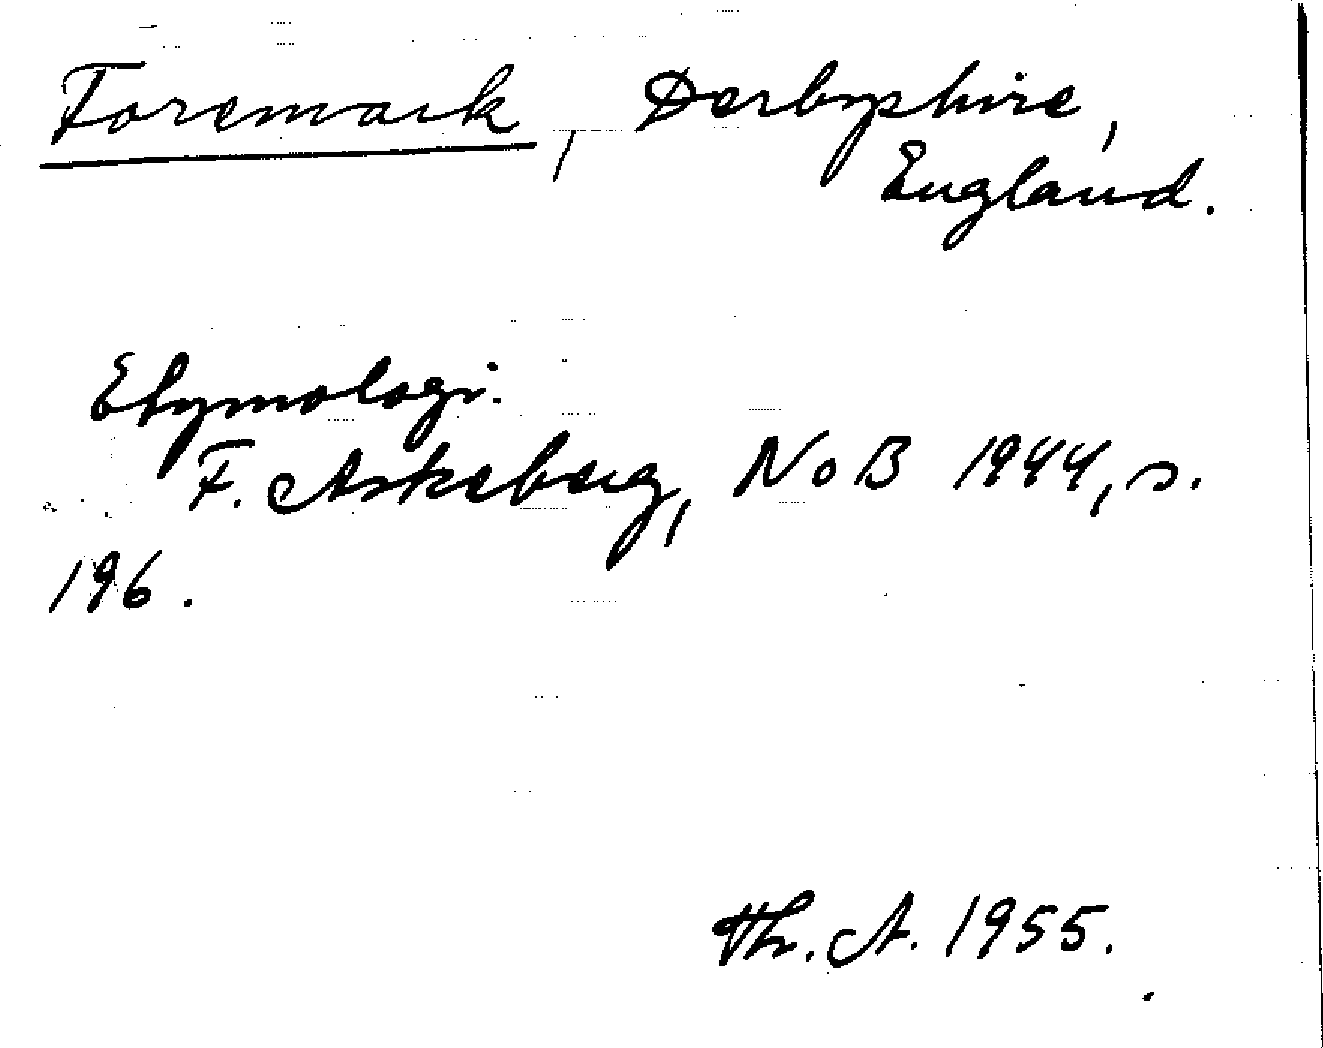 Foremark, Derbyshire,
England.
Etymologi.
F. Askeberg, NoB 1944, s.
196.
Th. A. 1955.